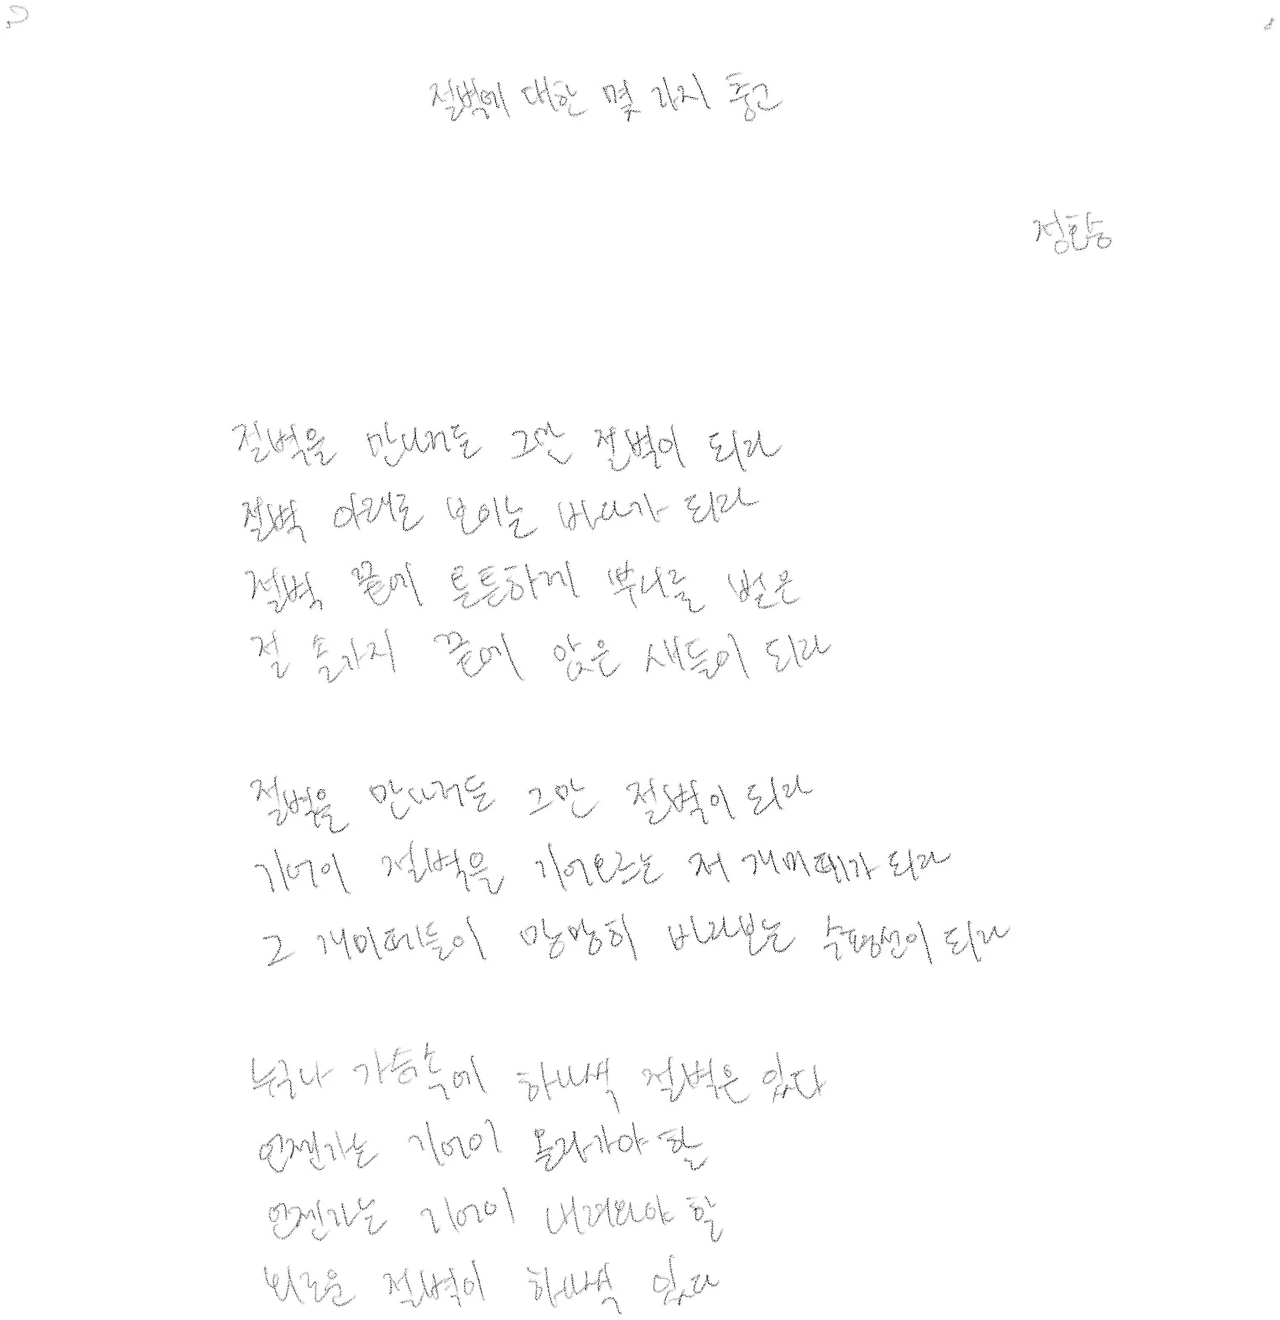 절벽에 대한 몇 가지 충고
정호승
절벽을 만나거든 그만 절벽이 되라
절벽 아래로 보이는 바다가 되라
절벽 끝에 튼튼하게 뿌리를 벋은
저 솔가지 끝에 앉은 새들이 되라
절벽을 만나거든 그만 절벽이 되라
기어이 절벽을 기어오르는 저 개미떼가 되라
그 개미떼들이 망망히 바라보는 수평선이 되라
누구나 가슴속에 하나씩 절벽은 있다
언젠가는 기어이 올라가야 할
언젠가는 기어이 내려와야 할
외로운 절벽이 하나씩 있다